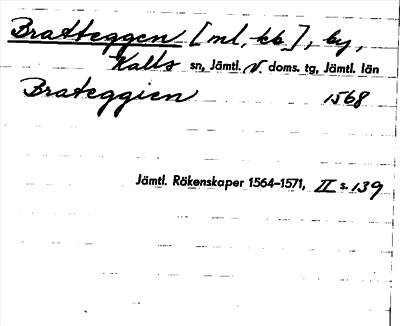 Bratteggen [ml, kb], by,
Kalls sn, Jämtl. v. doms. tg, Jämtl. län
Brateggien 1568
Jämtl. Räkenskaper 1564–1571, II s. 139